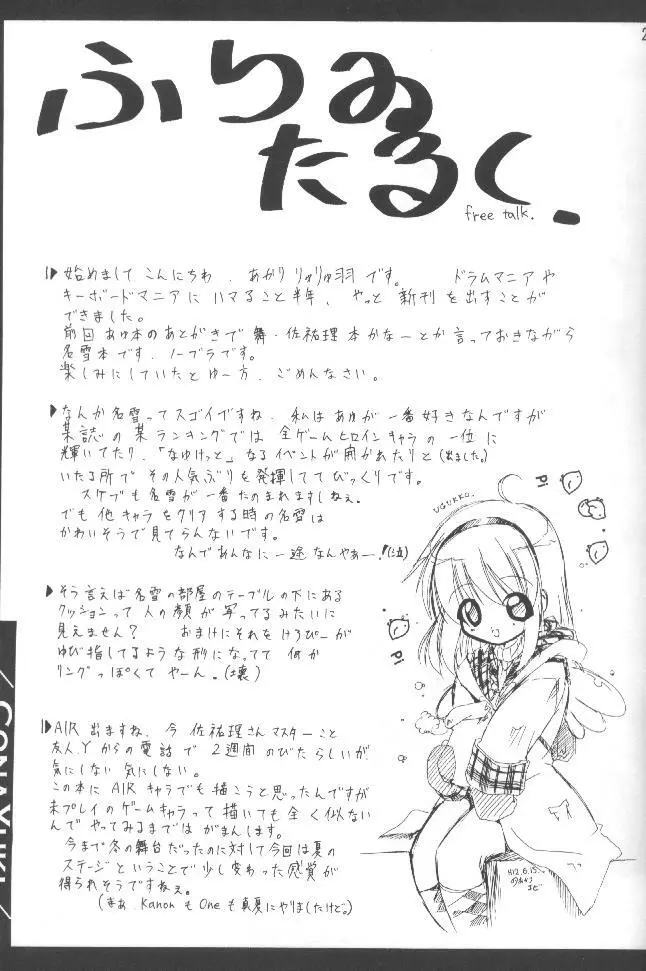 ふりゐ
たるく.
free talk.
▶始めまして こんにちわ、あかりりゅりゅ羽です。 ドラムマニアや
キーボードマニアに ハマること半年、やっと 新刊を出すことが
できました。
前回 あゆ本のあとがきで 舞・佐祐理本かなーとか言っておきながら
名雪本です、ノーブラです。
楽しみにしていたとゆー方、ごめんなさい。
▶なんか名雪ってスゴイですね、私はあゆが一番好きなんですが
某誌の某ランキングでは 全ゲームヒロインキャラの一位に
輝いてたり、「なゆけっと」なるイベントが開かれたりと(出ました。)
いたる所で その人気ぶりを発揮しててびっくりです。
スケブも名雪が一番たのまれますしねぇ。
でも他キャラをクリアする時の名雪は
かわいそうで見てらんないです。
なんであんなに一途なんやぁー!(泣)
▶そう言えば名雪の部屋のテーブルの下にある
クッションって 人の顔が写ってるみたいに
見えません? おまけにそれを けろぴーが
ゆび指してるような形になってて 何か
リングっぽくてやーん。(壊)
▶AIR出ますね、今 佐祐理さんマスターこと
友人Yからの電話で 2週間のびたらしいが
気にしない 気にしない。
この本に AIRキャラでも描こうと思ったんですが
未プレイのゲームキャラって描いても全く似ない
んで やってみるまでは がまんします。
今まで冬の舞台だったのに対して今回は夏の
ステージということで少し変わった感覚が
得られそうですねぇ。
(まあ、KanonもOneも真夏にやりましたけど。)
UGUKKO.
Pi
Pi
H12.6.15.
CONAYUKI
2